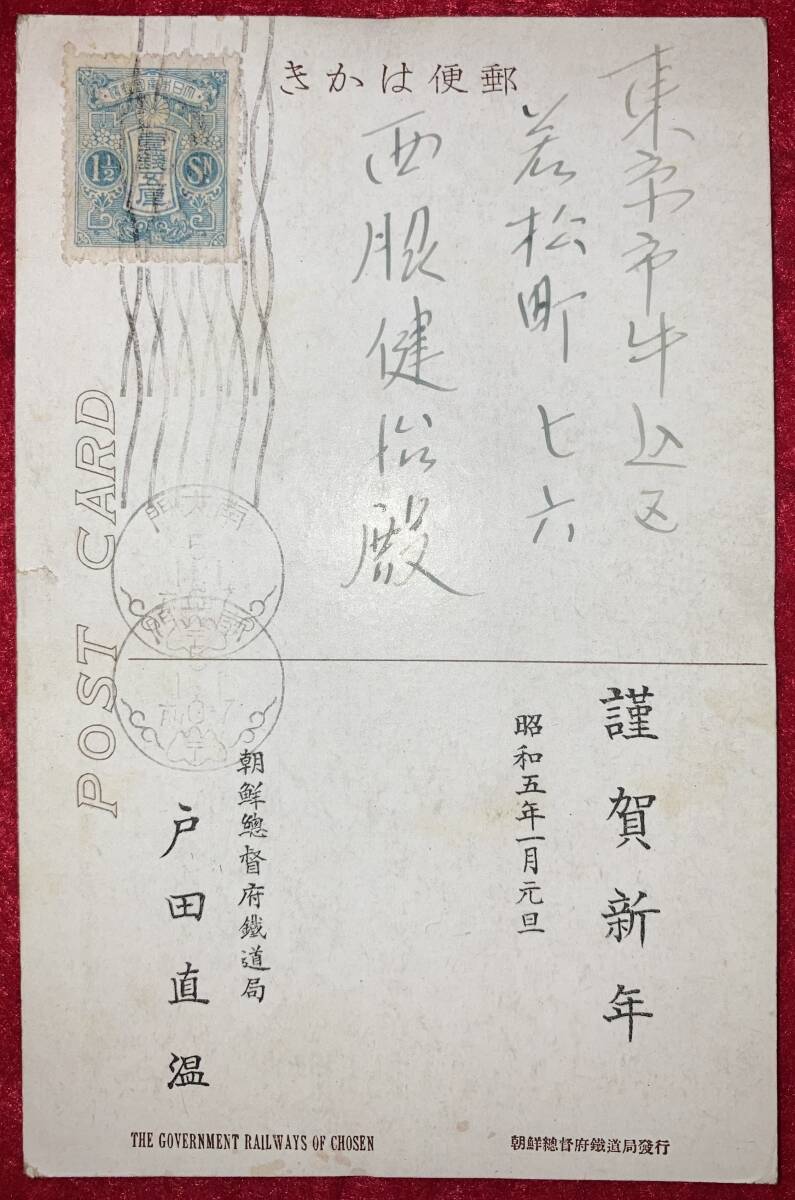 郵便はかき
大日本帝國郵便
壹錢五厘
1½
Sn
東京市牛込区
若松町七六
西脹健治殿
POST CARD
南大門
謹賀新年
昭和五年一月元旦
朝鮮總督府鐵道局
戸田直温
THE GOVERNMENT RAILWAYS OF CHOSEN
朝鮮總督府鐵道局發行